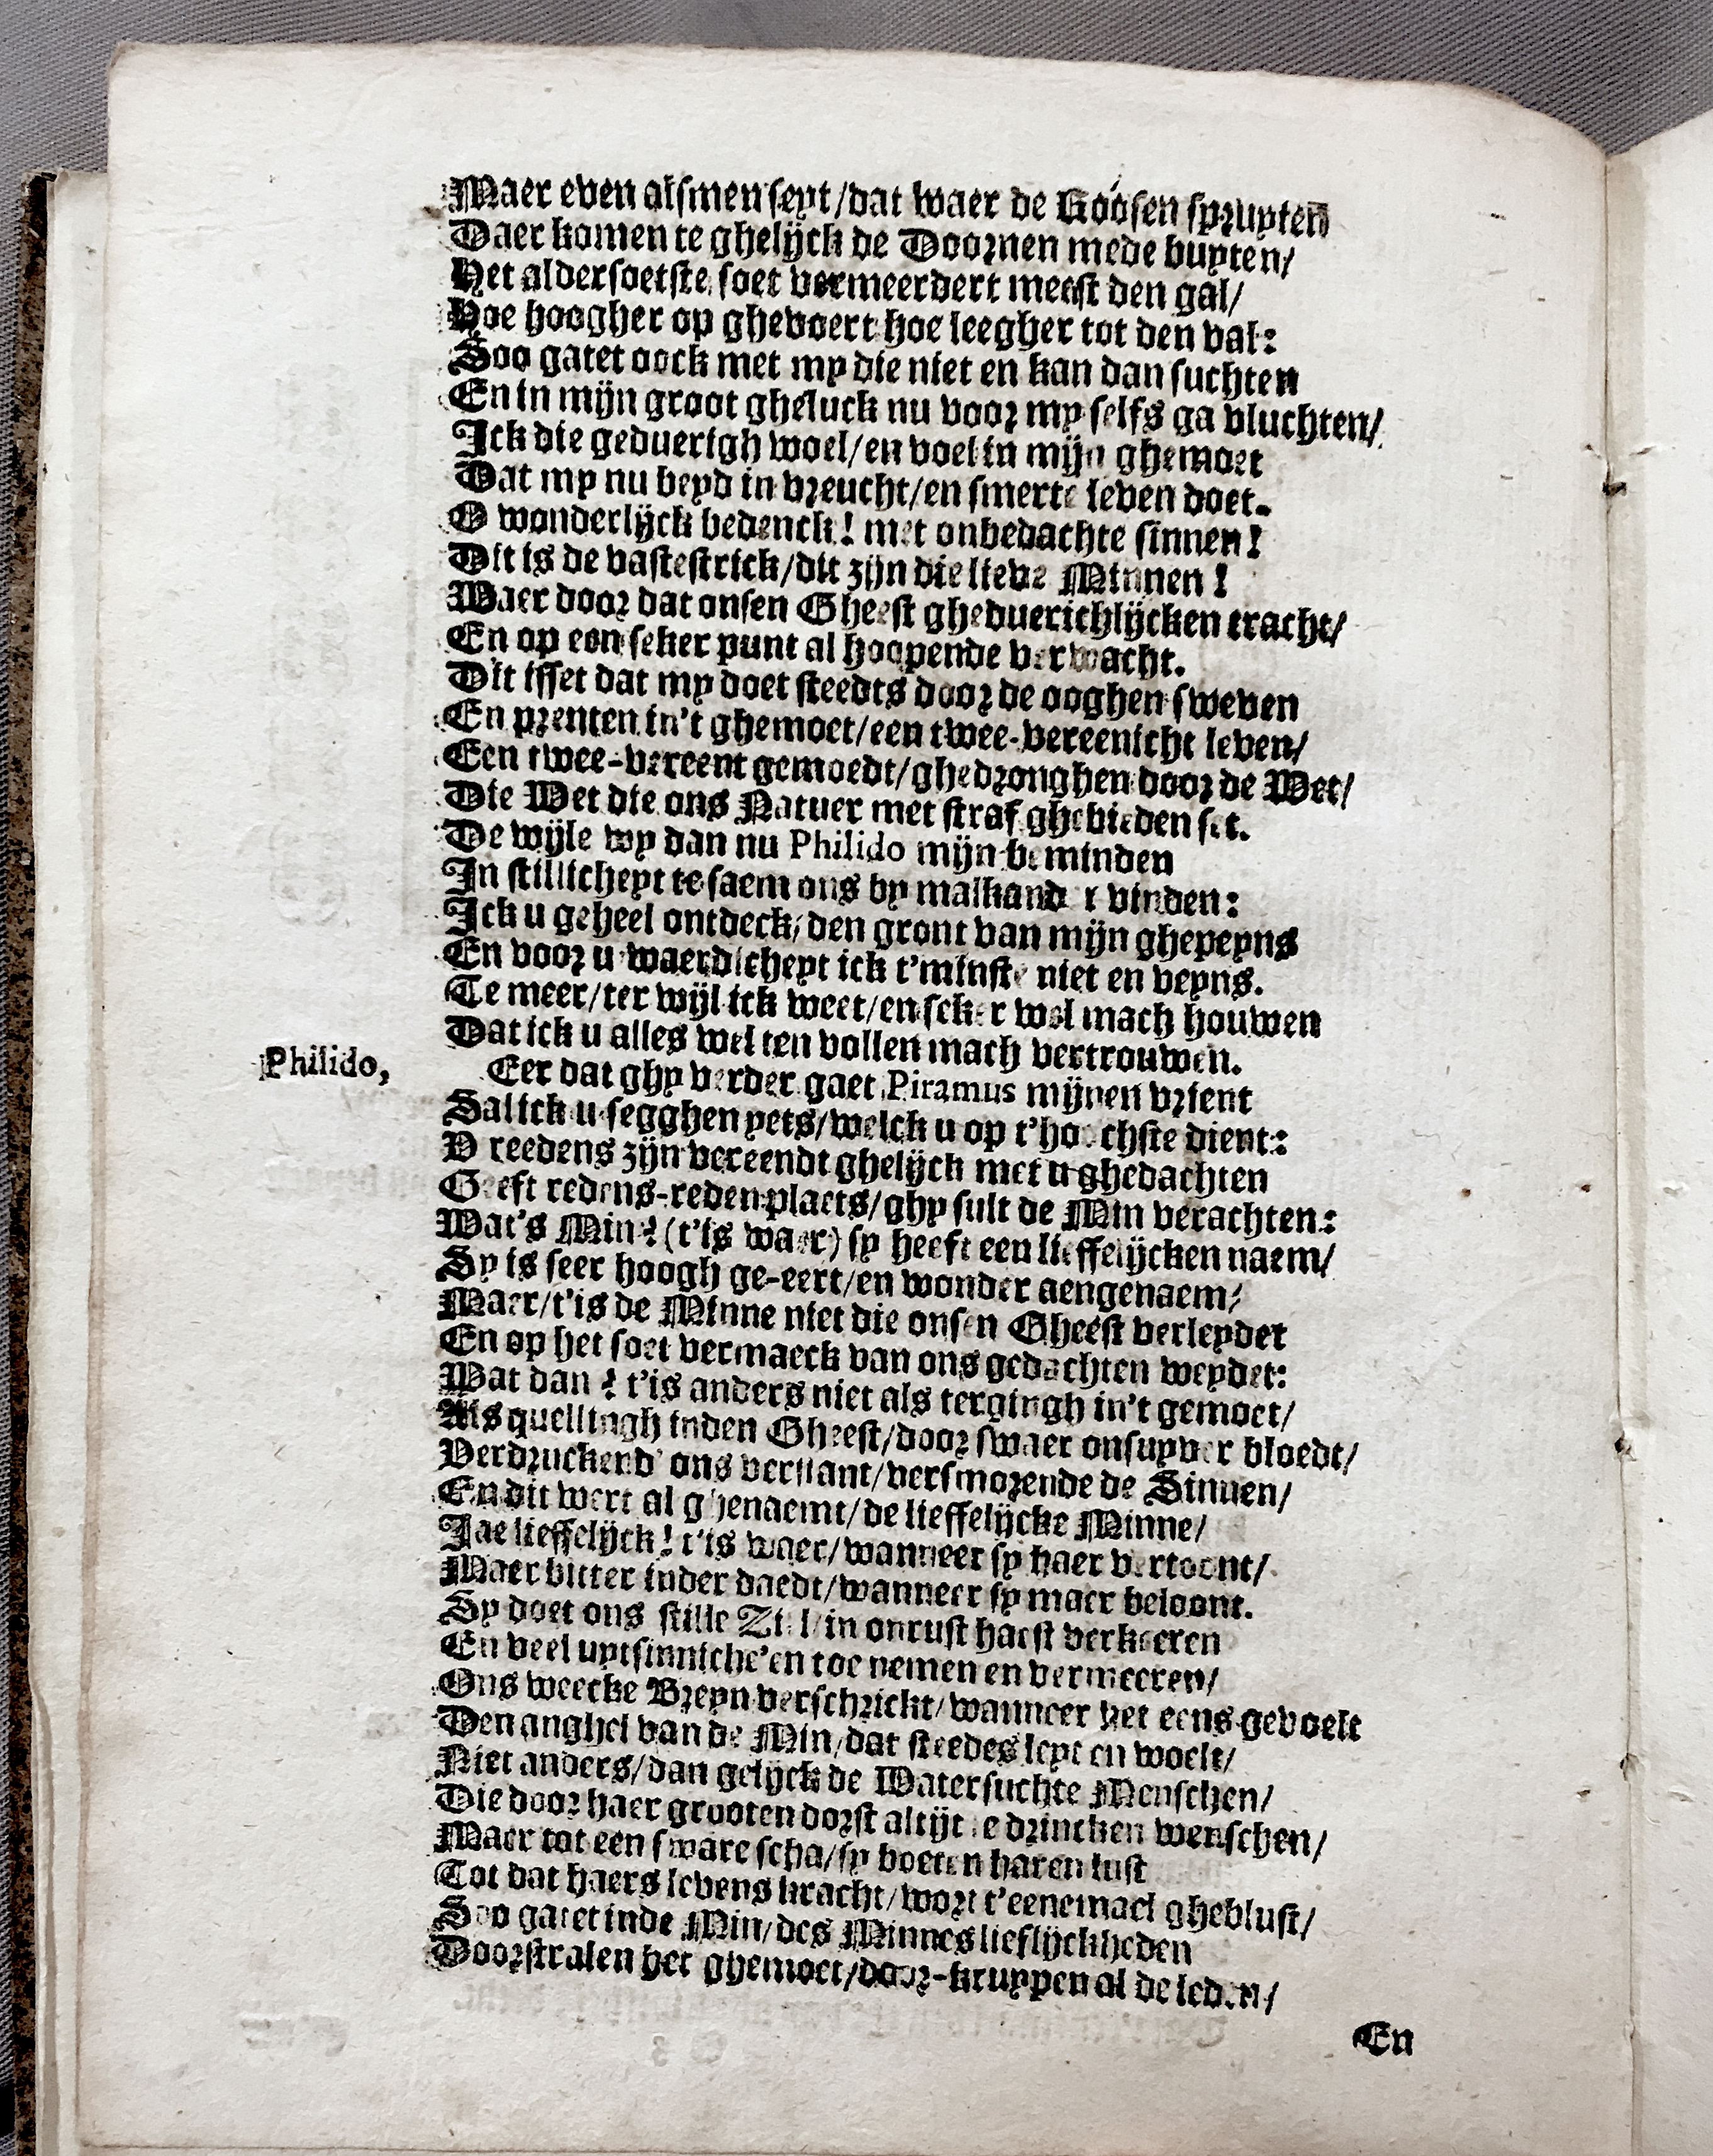 Maer even alsmen seyt/dat waer de Roosen spruyten
Daer komen te ghelijck de Doornen mede buyten/
Het aldersoetste soet vermeerdert meest den gal/
Hoe hoogher op ghevoert hoe leegher tot den val:
Soo gatet oock met my die niet en kan dan suchten
En in mijn groot gheluck nu voor my selfs ga vluchten/
Ick die geduerigh woel/en voel in mijn ghemoet
Dat my nu beyd in vreucht/en smerte leven doet.
O wonderlijck bedenck! met onbedachte sinnen!
Dit is de vaste strick/dit zijn die lieve Minnen!
Waer door dat onsen Gheest gheduerichlijcken tracht/
En op een seker punt al hoopende verwacht.
Dit isset dat my doet steedts door de ooghen sweven
En prenten in't ghemoet/een twee-vereenicht leven/
Een twee-vereent gemoedt/ghedronghen door de Wet/
Die Wet die ons Natuer met straf ghebieden set.
De wijle wy dan nu Philido mijn beminden
In stillicheyt te saem ons by malkander vinden:
Ick u geheel ontdeck/den gront van mijn ghepeyns
En voor u waerdicheyt ick t'minste niet en veyns.
Te meer/ter wijl ick weet/en seker wel mach houwen
Dat ick u alles wel ten vollen mach vertrouwen.
Philido, Eer dat ghy verder gaet Piramus mijnen vrient
Sal ick u segghen yets/welck u op t'hoochste dient:
V reedens zijn vereendt ghelijck met u ghedachten
Geeft redens-reden plaets/ghy sult de Min verachten:
Wat's Min? (t'is waer) sy heeft een lieffelijcken naem/
Sy is seer hoogh ge-eert/en wonder aengenaem/
Maer/t'is de Minne niet die onsen Gheest verleydet
En op het soet vermaeck van ons gedachten weydet:
Wat dan? t'is anders niet als tergingh in't gemoet/
Als quellingh inden Gheest/door swaer onsuyver bloedt/
Verdruckend' ons verstant/versmorende de Sinnen/
En dit wert al ghenaemt/de lieffelijcke Minne/
Jae lieffelijck! t'is waer/wanneer sy haer vertoont/
Maer bitter inder daedt/wanneer sy maer beloont.
Sy doet ons stille Ziel/in onrust haest verkeeren
En veel uytsinniche'en toe nemen en vermeeren/
Ons weecke Breyn verschrickt/wanneer het eens gevoelt
Den anghel van de Min/dat steedes leyt en woelt/
Niet anders/dan gelijck de Watersuchte Menschen/
Die door haer grooten dorst altijt te drincken wenschen/
Maer tot een sware scha/sy boeten haren lust
Tot dat haers levens kracht/wort t'eenemael gheblust/
Soo gatet inde Min/des Minnes lieflijckheden
Doorstralen het ghemoet/door-kruypen al de leden/
En